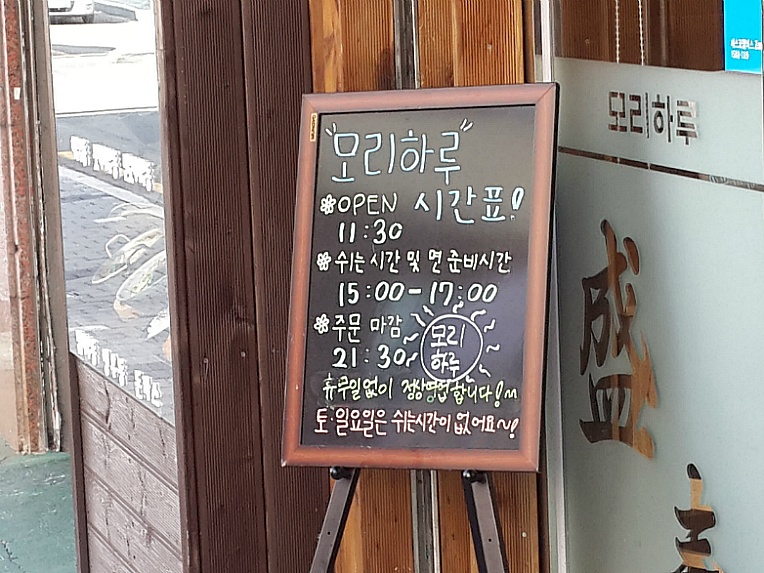 "모리하루"
OPEN 시간표!
11:30
쉬는 시간 및 면 준비시간
15:00-17:00
주문 마감
21:30
모리
하루
휴무일없이 정상영업합니다!~
토·일요일은 쉬는시간이 없어요~!
모리하루
盛